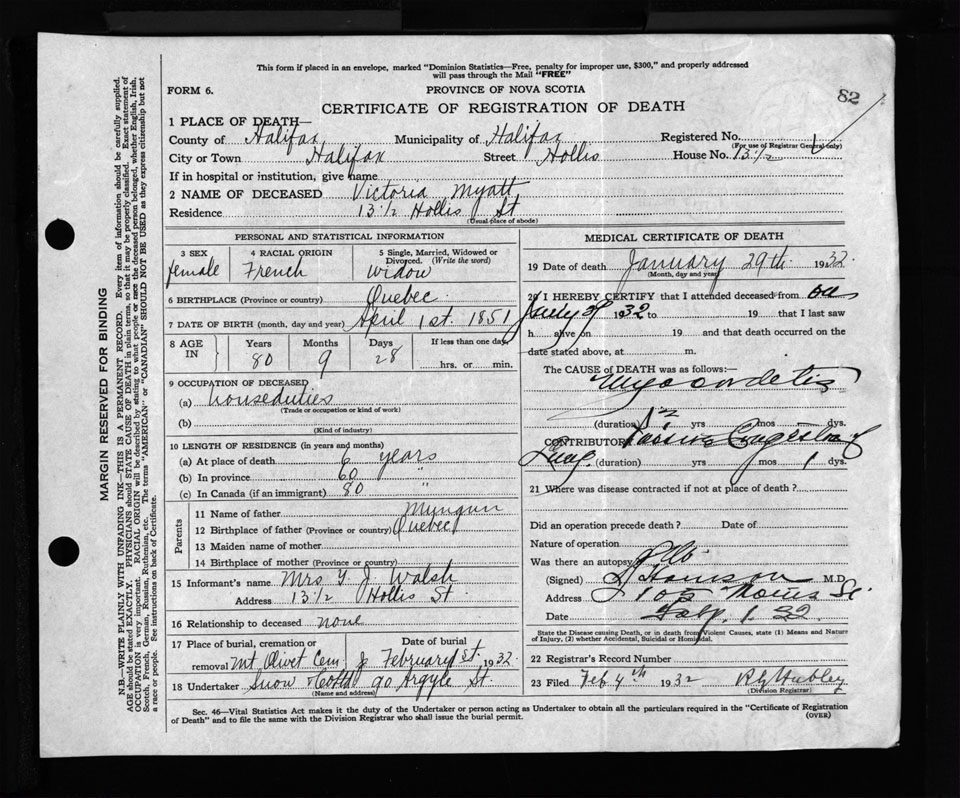 This form if placed in an envelope, marked "Dominion Statistics—Free, penalty for improper use, $300," and properly addressed
will pass through the Mail "FREE"
FORM 6.
PROVINCE OF NOVA SCOTIA
82
CERTIFICATE OF REGISTRATION OF DEATH
1 PLACE OF DEATH—
County of Halifax Municipality of Halifax Registered No.
(For use of Registrar General only)
City or Town Halifax Street Hollis House No. 13½
If in hospital or institution, give name
2 NAME OF DECEASED Victoria Myatt
Residence 13½ Hollis St
(Usual place of abode)
PERSONAL AND STATISTICAL INFORMATION
3 SEX
female
4 RACIAL ORIGIN
French
5 Single, Married, Widowed or
Divorced. (Write the word)
Widow
6 BIRTHPLACE (Province or country) Quebec.
7 DATE OF BIRTH (month, day and year) April 1st. 1851
8 AGE
IN
Years Months Days If less than one day
80 9 28 hrs. or min.
9 OCCUPATION OF DECEASED
(a) houseduties
(Trade or occupation or kind of work)
(b)
(Kind of industry)
10 LENGTH OF RESIDENCE (in years and months)
(a) At place of death 6 years
(b) In province 60 "
(c) In Canada (if an immigrant) 80 "
Parents
11 Name of father
12 Birthplace of father (Province or country) Quebec
13 Maiden name of mother
14 Birthplace of mother (Province or country)
15 Informant's name Mrs J. Walsh
Address 13½ Hollis St.
16 Relationship to deceased none
17 Place of burial, cremation or Date of burial
removal Mt Olivet Cem February 1st. 1932
18 Undertaker Snow 90 Argyle St.
(Name and address)
MEDICAL CERTIFICATE OF DEATH
19 Date of death January 29th. 1932
(Month, day and year)
20 I HEREBY CERTIFY that I attended deceased from
1932 to 19 that I last saw
h alive on 19 and that death occurred on
date stated above, at m.
The CAUSE of DEATH was as follows:—
(duration) yrs mos dys.
CONTRIBUTORY
(duration) yrs mos 1 dys.
21 Where was disease contracted if not at place of death?
Did an operation precede death? Date of
Nature of operation
Was there an autopsy
(Signed) M.D.
Address
Date 1. 32
State the Disease causing Death, or in death from Violent Causes, state (1) Means and Nature
of Injury, (2) whether Accidental, Suicidal or Homicidal.
22 Registrar's Record Number
23 Filed Feb 4th 1932
(Division Registrar)
Sec. 46—Vital Statistics Act makes it the duty of the Undertaker or person acting as Undertaker to obtain all the particulars required in the "Certificate of Registration
of Death" and to file the same with the Division Registrar who shall issue the burial permit.
(OVER)
MARGIN RESERVED FOR BINDING
N.B.—WRITE PLAINLY WITH UNFADING INK—THIS IS A PERMANENT RECORD. Every item of information should be carefully supplied.
AGE should be stated EXACTLY. PHYSICIANS should STATE CAUSE OF DEATH in plain terms, so that it may be properly classified. Exact statement of
OCCUPATION is very important. RACIAL ORIGIN will be described by stating to what people or race the deceased person belonged, whether English, Irish,
Scotch, French, German, Russian, Ruthenian, etc. The terms "AMERICAN" or "CANADIAN" SHOULD NOT BE USED as they express citizenship but not
a race or people. See instructions on back of Certificate.